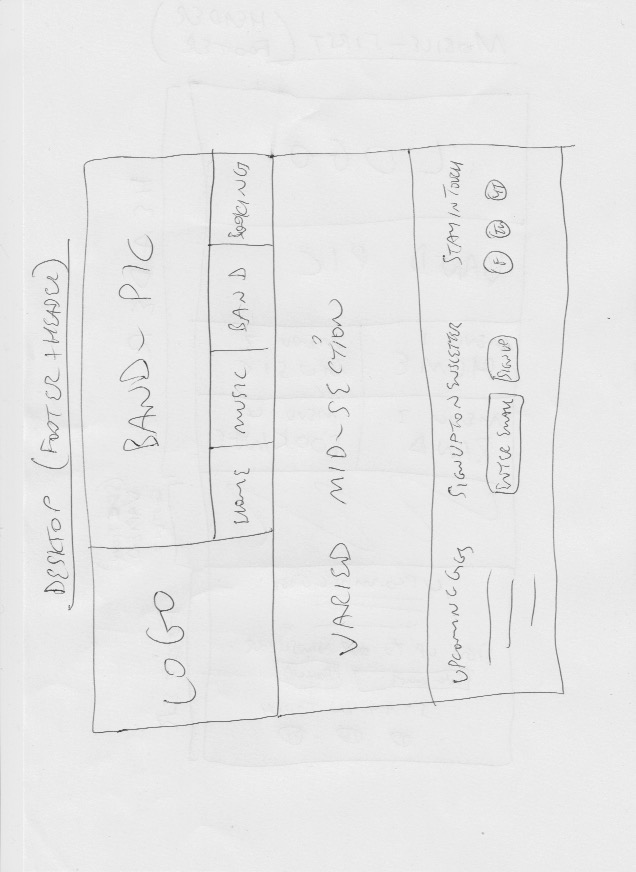 DESKTOP (FOOTER + HEADER)
LOGO
BAND - PIC
HOME
MUSIC
BAND
BOOKING
VARIED MID-SECTION
UPCOMING GIGS
SIGN UP TO NEWSLETTER
ENTER EMAIL
SIGN UP
STAY IN TOUCH
F
TW
YT
MOBILE-FIRST (HEADER
FOOTER)
LOGO
PIC